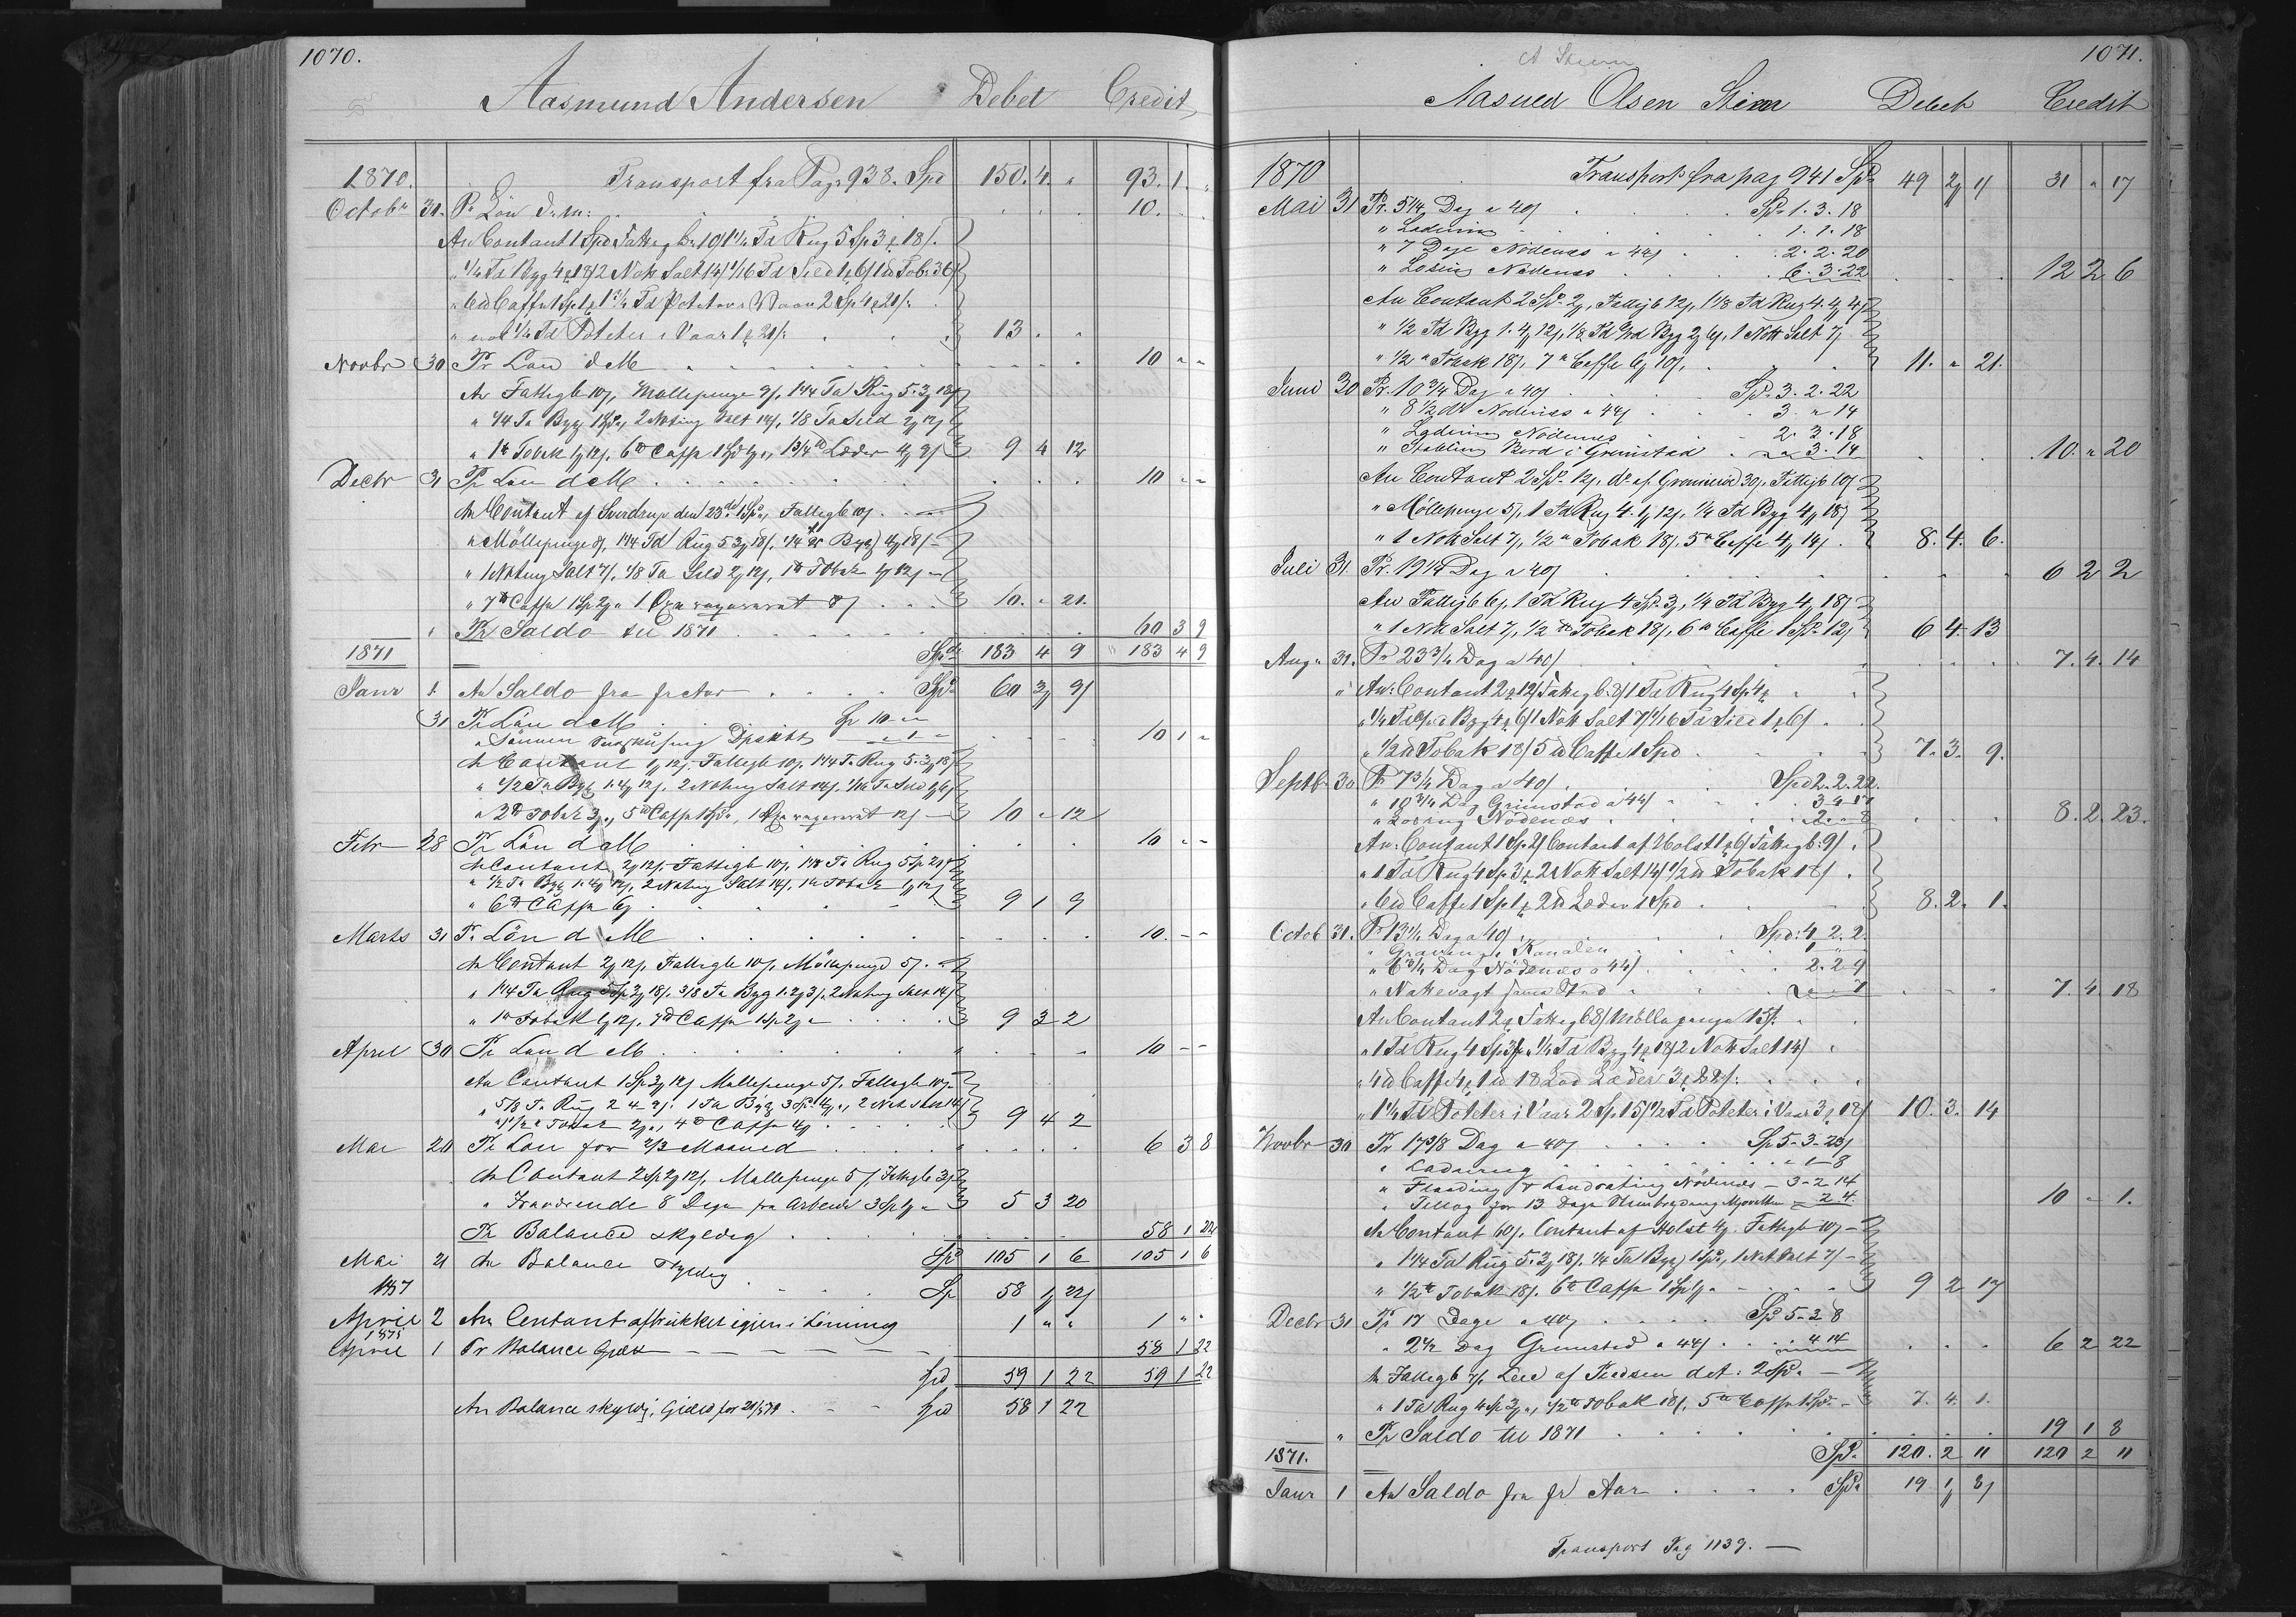 1070.
Aasmund Andersen Debet Credit
1870. Transport fra Pag. 938. Spd 150. 4. " 93. 1. "
Octobr 31. Pr Lön d. m: 10. " "
An Contant 1 Spd Fattigb: 10/ 1 1/4 Td Rug 5 Sp 3 18/.
" 1/4 Td Byg 4 18/ 2 Nott Salt 14/ 1/16 Td Sild 1 6/ 1 Tob: 36/
" 6 Caffe 1 Sp 1 1 3/4 Td Poteter i Vaar 2 Sp 4 20/.
" 1/4 Td Poteter i Vaar 1 21/. 13 " "
Novbr 30 Pr Lön d M 10 " "
An Fattigb 10/, Möllepenge 9/, 1 1/4 Td Rug 5. 3 18/
" 1/4 Td Byg 1 Spd, 2 Noting Salt 14/, 1/8 Td Sild 2 12/
" 1 Tobak 1 12/, 6 Caffe 1 Spd 1 ", 1 3/4 Læder 4 9/ 9 4 12
Decbr 31 Pr Lön d M 10 " "
An Contant af Sverdrup den 23de 1 Spd, Fattigb 10/
" Möllepenge 8/, 1 1/4 Td Rug 5 3 18/, 1/4 Byg 4 18/
" 1 Noting Salt 7/, 1/8 Td Sild 2 12/, 1 Tobak 1 12/
" 7 Caffe 1 Sp 2 " 1 8/ 10. " 21.
" Pr Saldo til 1871 60 3 9
1871 Spd 183 4 9 " 183 4 9
Janr 1. An Saldo fra fr Aar Spd 60 3 9/
31 Pr Lön d M Sp 10 " "
" Sönnen " 1 " 10 1 "
An Contant 1 12/, Fattigb 10/, 1 1/4 Td Rug 5. 3 18/
" 1/2 Td Byg 1. 4 12/, 2 Noting Salt 14/, 1/16 Td Sild 1 6/
" 2 Tobak 3 ", 5 Caffe 1 Spd, 1 12/ 10 " 12
Febr 28 Pr Lön d M 10 " "
An Contant 2 12/, Fattigb 10/, 1 1/8 Td Rug 5 Sp 21/
" 1/2 Td Byg 1. 4 12/, 2 Noting Salt 14/, 1 Tobak 1 12/
" 6 Caffe 6 9 1 9
Marts 31 Pr Lön d M 10. " "
An Contant 2 12/, Fattigb 10/, Möllepenge 5/.
" 1 1/4 Td Rug 5 Sp 3 18/. 3/8 Td Byg 1. 2 3/, 2 Noting Salt 14/
" 1 Tobak 1 12/, 7 Caffe 1 Sp 2 " 9 3 2
April 30 Pr Lön d M 10 " "
An Contant 1 Sp 3 12/ Möllepenge 5/, Fattigb 10/
" 5/8 Td Rug 2 4 9/. 1 Td Byg 3 Sp 4 ", 2 Nott Salt 14/
" 1 1/2 Tobak 2 ", 4 Caffe 4 9 4 2
Mai 20 Pr Lön for 2/3 Maaned 6 3 8
An Contant 2 Sp 2 12/, Möllepenge 5/, Fattigb 3/
" Fraværende 8 Dage fra Arbeide 3 Sp 1 " 5 3 20
Pr Balance skyldig 58 1 22
Mai 21 An Balance skyldig Spd 105 1 6 105 1 6
Sp 58 1 22/
April 2 An Contant aftrukket igjen i Lönning 1 " " 1 " "
1878
April 1 Pr Balance Gjæld 58 1 22
Spd 59 1 22 59 1 22
An Balance skyldig, Gjæld for Spd 58 1 22
A Steen
1071.
Aasued Olsen Steen Debet Credit
1870 Transport fra pag 941 Spd 49 2 11 31 " 17
Mai 31 Pr. 5 1/4 Dag a 40/ Spd 1. 3. 18
" Ladning 1. 1. 18
" 7 Dage Nödenes a 44/ 2. 2. 20
" Losning Nödenes 6. 3. 22 12 2 6
An Contant 2 Spd 2, Fattigb 12/, 1 1/8 Td Rug 4. 4 4/
" 1/2 Td Byg 1. 4 12/, 1/8 Td Byg 2 6/, 1 Nott Salt 7/
" 1/2 Tobak 18/, 7 Caffe 6 10/. 11. " 21.
Juni 30 Pr. 10 3/4 Dag a 40/ Spd 3. 2. 22
" 8 1/2 do Nödenes a 44/ 3. " 14
" Ladning Nödenes 2. 3. 18
" Stabling Bord i Grimstad " 3. 14 10. " 20
An Contant 2 Spd 12/, do af Grönnerød 30/, Fattigb 10/
" Möllepenge 5/, 1 Td Rug 4. 1 12/, 1/4 Td Byg 4 18/
" 1 Nott Salt 7/, 1/2 Tobak 18/. 5 Caffe 4 14/. 8. 4. 6.
Juli 31. Pr. 19 1/4 Dag a 40/ 6 2 2
An Fattigb 6/, 1 Td Rug 4 Spd 3, 1/4 Td Byg 4 18/
" 1 Nott Salt 7/, 1/2 Tobak 18/, 6 Caffe 1 Spd 12/ 6 4 13
Aug. 31. Pr 23 3/4 Dag a 40/ 7. 4. 14
" An: Contant 2 12/ Fattigb. 8/ 1 Td Rug 4 Sp 4
" 1/4 Td Byg 4 6/ 1 Nott Salt 7/ 1/16 Td Sild 1 6/
" 1/2 Tobak 18/ 5 Caffe 1 Spd 7. 3. 9.
Septbr 30 Pr 7 3/4 Dag a 40/ Spd 2. 2. 22.
" 10 3/4 Dag Grimstad a 44/ 3 4 17
" Losning Nödenes 2 " 8 8. 2. 23.
An: Contant 1 Sp 2/ Contant af Holst 1 6/ Fattigb: 9/
" 1 Td Rug 4 Sp 3 2 Nott Salt 14/ 1/2 Tobak 18/
" 6 Caffe 1 Sp 1 2 Læder 1 Spd 8. 2. 1.
Octob 31. Pr 13 1/4 Dag a 40/ Spd: 4 2. 2.
" Gravning i Kanalen 1 " "
" 6 3/4 Dag Nödenes a 44/ 2. 2 9
" Nattevagt sama Sted " " 7 7. 4. 18
An Contant 2 Fattigb 8/ Möllepenge 15/.
" 1 Td Rug 4 Sp 3 " 1/4 Td Byg 4 18/ 2 Nott Salt 14/
" 4 Caffe 4 1 18 Lod Læder 3 22/:
" 1 1/4 Td Poteter i Vaar 2 Sp 15/ 1/2 Td Poteter i Vaar 3 18/ 10. 3. 14
Novbr 30 Pr 17 3/8 Dag a 40/ Sp 5 3 23/
" Ladning " 1 8
" Flaading & Landsætting Nödenes 3 2 14
" Tillæg for 13 Dage 2 4. 10 " 1.
An Contant 60/, Contant af Holst 4. Fattigb 10/
" 1 1/4 Td Rug 5. 3 18/, 1/4 Td Byg 1 Spd, 1 Nott Salt 7/
" 1/2 Tobak 18/. 6 Caffe 1 Sp 1 " 9 2 17
Decbr 31 Pr 17 Dage a 40/ Spd 5 3 8
" 2 1/2 Dag Grimstad a 44/ 4 14 6 2 22
An Fattigb 7/, Leie af det: 2 Spd
" 1 Td Rug 4 Sp 3 ", 1/2 Tobak 18/, 5 Caffe 1 Spd 7. 4. 1.
" Pr Saldo til 1871 19 1 8
1871. Spd 120. 2 11 120 2 11
Janr 1 An Saldo fra fr Aar Spd 19 1 8/
Transport Pag 1139.